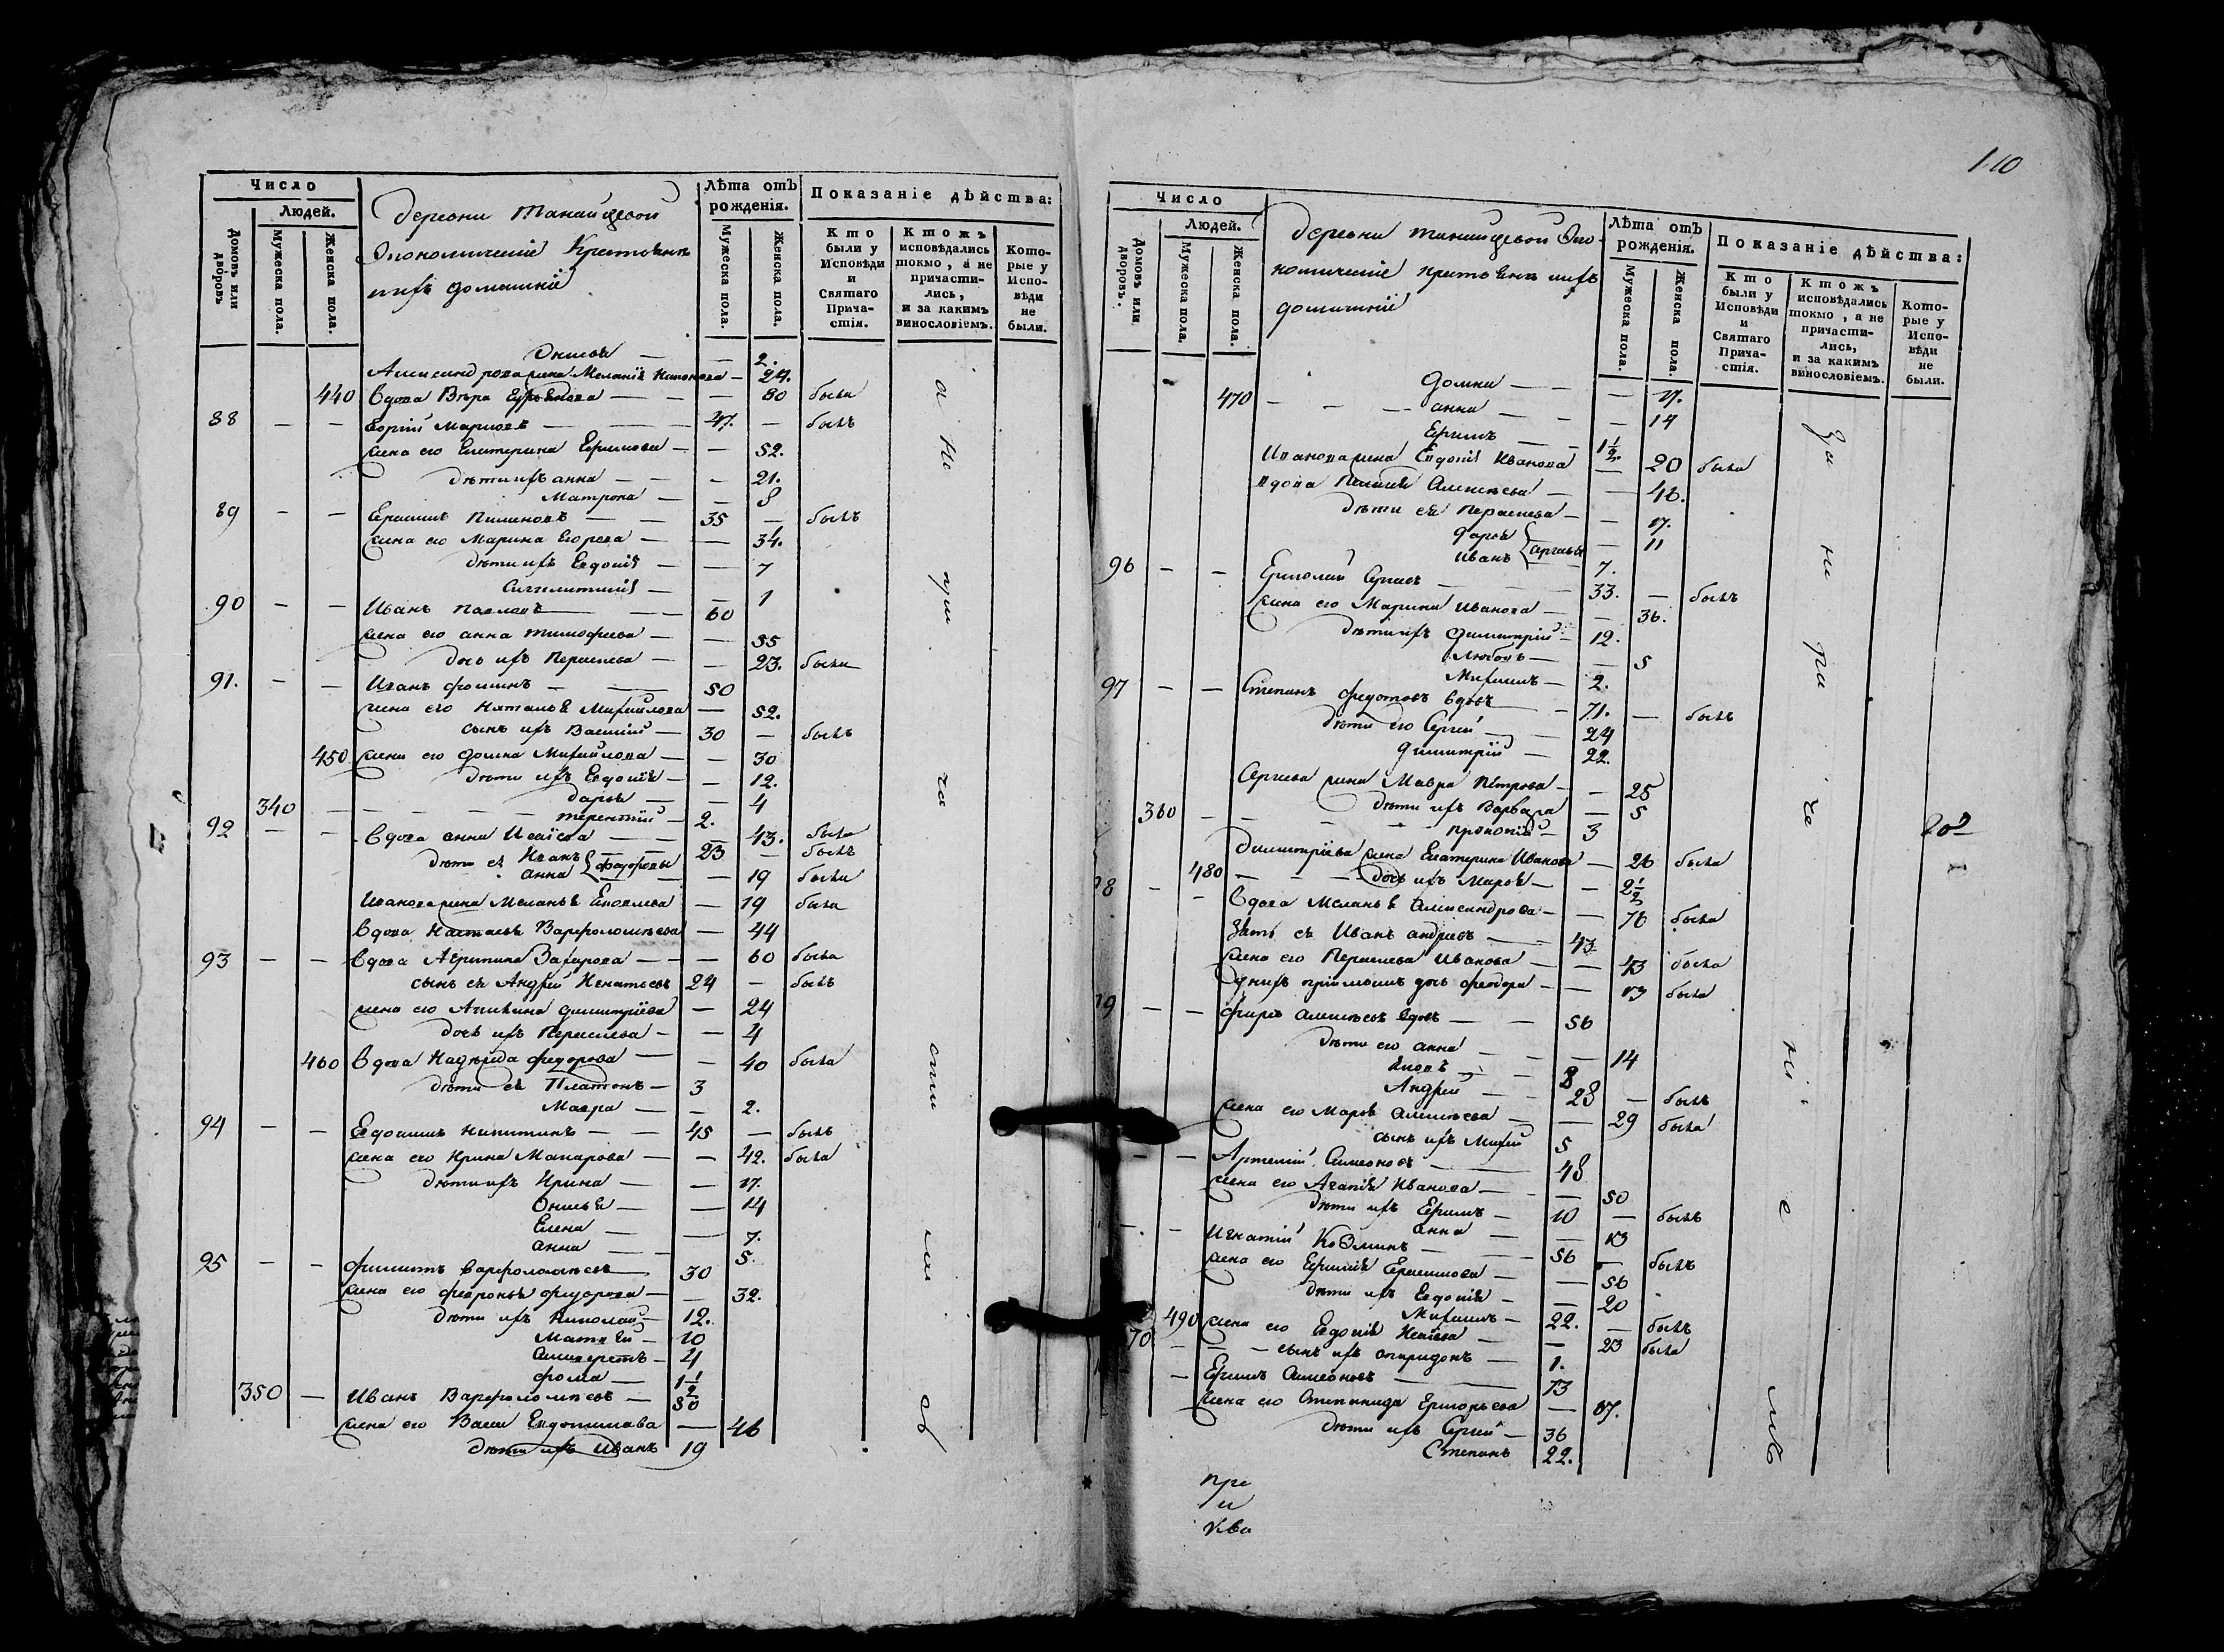 Число
Людей.
Домовъ или дворовъ
Мужеска пола.
Женска пола.
деревни Танайцевой
Экономическіе Крестьяне
и ихъ домашніе
Лѣта отъ рожденія.
Мужеска пола.
Женска пола.
Показаніе дѣйства:
Кто были у Исповѣди и Святаго Причастія.
Ктожъ исповѣдались токмо, а не причастились, и за какимъ винословіемъ.
Которые у Исповѣди не были.
— — 2.
жена Меланія — 24.
440 вдова Вѣра — — — 80 была
88 — — — 47. — былъ
жена его Екатерина Ефимова — — 52.
дѣти ихъ анна — — — 21.
Матрона — — 8
89 — — Герасимъ Пименовъ — — 35 — былъ
жена его Марина Егорева — — 34.
дѣти ихъ Евдокія — — 7
— — 1
90 — — Иванъ Павловъ — — 60
жена его анна тимофеева — — 55
дочь ихъ Параскева — — 23. была
91. — — Иванъ фоминъ — — 50
жена его Наталья Михайлова — 52.
сынъ ихъ Василій — 30 — былъ
450 жена его Домна Михайлова — — 30
дѣти ихъ Евдокія — — 12.
дарья — — 4
340 — — — — терентій — 2.
92 — — вдова анна Исаїева — — — 43. была
дѣти ея Иванъ — — 23 — былъ
анна — — — 19 была
Иванова жена Меланья Яковлева — 19 была
вдова Наталья Варфоломѣева — 44
93 — — вдова Агрипина Захарова — — — 60 была
сынъ ея Андрей Игнатьевъ 24 — былъ
жена его Акилина димитріева — 24
дочь ихъ Параскева — — 4
460 вдова Надѣжда федорова — — 40 была
дѣти ея Платонъ — 3
Мавра — — 2.
94 — — Евдокимъ Никитинъ — — 45 — былъ
жена его Ирина Макарова — — 42. была
дѣти ихъ Ирина — — 17.
— — 14
Елена — — 7.
анна — — 5.
95 — — филипъ варфоломѣевъ — 30
жена его февронья федорова — — 32.
дѣти ихъ Николай — 12.
Матвей — 10
— 4
фома — 1 1/2
350 — Иванъ Варфоломѣевъ — 50
жена его Васса Евдокимова — 46
дѣти ихъ Иванъ 19
а не при ча сти ли сь
110
Число
Людей.
Домовъ или дворовъ.
Мужеска пола.
Женска пола.
деревни танайцевой Эко-
номическіе крестьяне и ихъ
домашніе
Лѣта отъ рожденія.
Мужеска пола.
Женска пола.
Показаніе дѣйства:
Кто были у Исповѣди и Святаго Причастія.
Ктожъ исповѣдались токмо, а не причастились, и за какимъ винословіемъ.
Которые у Исповѣди не были.
Домна — — — 17.
470 — — — анна — — — 14
Ефимъ — — 1 1/2
Иванова жена Евдокія Иванова — 20 была
вдова Алексѣева — — 48.
дѣти ея Параскева — — 17.
дарья — 11
Иванъ — 7.
96 — — Ермолай Сергѣевъ — 33. — былъ
жена его Марина Иванова — — 36.
дѣти ихъ димитрій — 12.
Любовь — — 5
Михаилъ — 2.
97 — — Степанъ федотовъ вдовъ — 71. — былъ
дѣти его Сергей — — 24
димитрій — 22.
Сергева жена Мавра Петрова — — 25
дѣти ихъ Варвара — 5
360 — — — Прокопій — 3
Димитріева жена Екатерина Иванова — 26 была
480 — — — дочь ихъ Марья — — 2 1/2
98 — — вдова Меланья Александрова — — 76 была
Зять ея Иванъ андреевъ — — 43
жена его Параскева Иванова — — 43 была
у нихъ пріемышъ дочь феодора — — 13 была
99 — — алексѣевъ вдовъ — — 56
дѣти его анна — — — 14
Яковъ — — 8
Андрей — — 28 — былъ
жена его Марья Алексѣева — — 29 была
сынъ ихъ 5
— — Артемій Симеоновъ — 48
жена его Агапія Иванова — — 50
дѣти ихъ Ефимъ — 10 — былъ
анна — — 13
— — Игнатій Козминъ — 56 — былъ
жена его Герасимова — — 56
дѣти ихъ Евдокія — — 20
Михаилъ — 22. — былъ
490 жена его Евдокія Исаїева — — 23 была
370 — — — сынъ ихъ спиридонъ — 1.
— Ефимъ Симеоновъ — 73
жена его Степанида Григорьева — 67.
дѣти ихъ Сергей — 36
Степанъ 22.
За не ра че ні е мъ